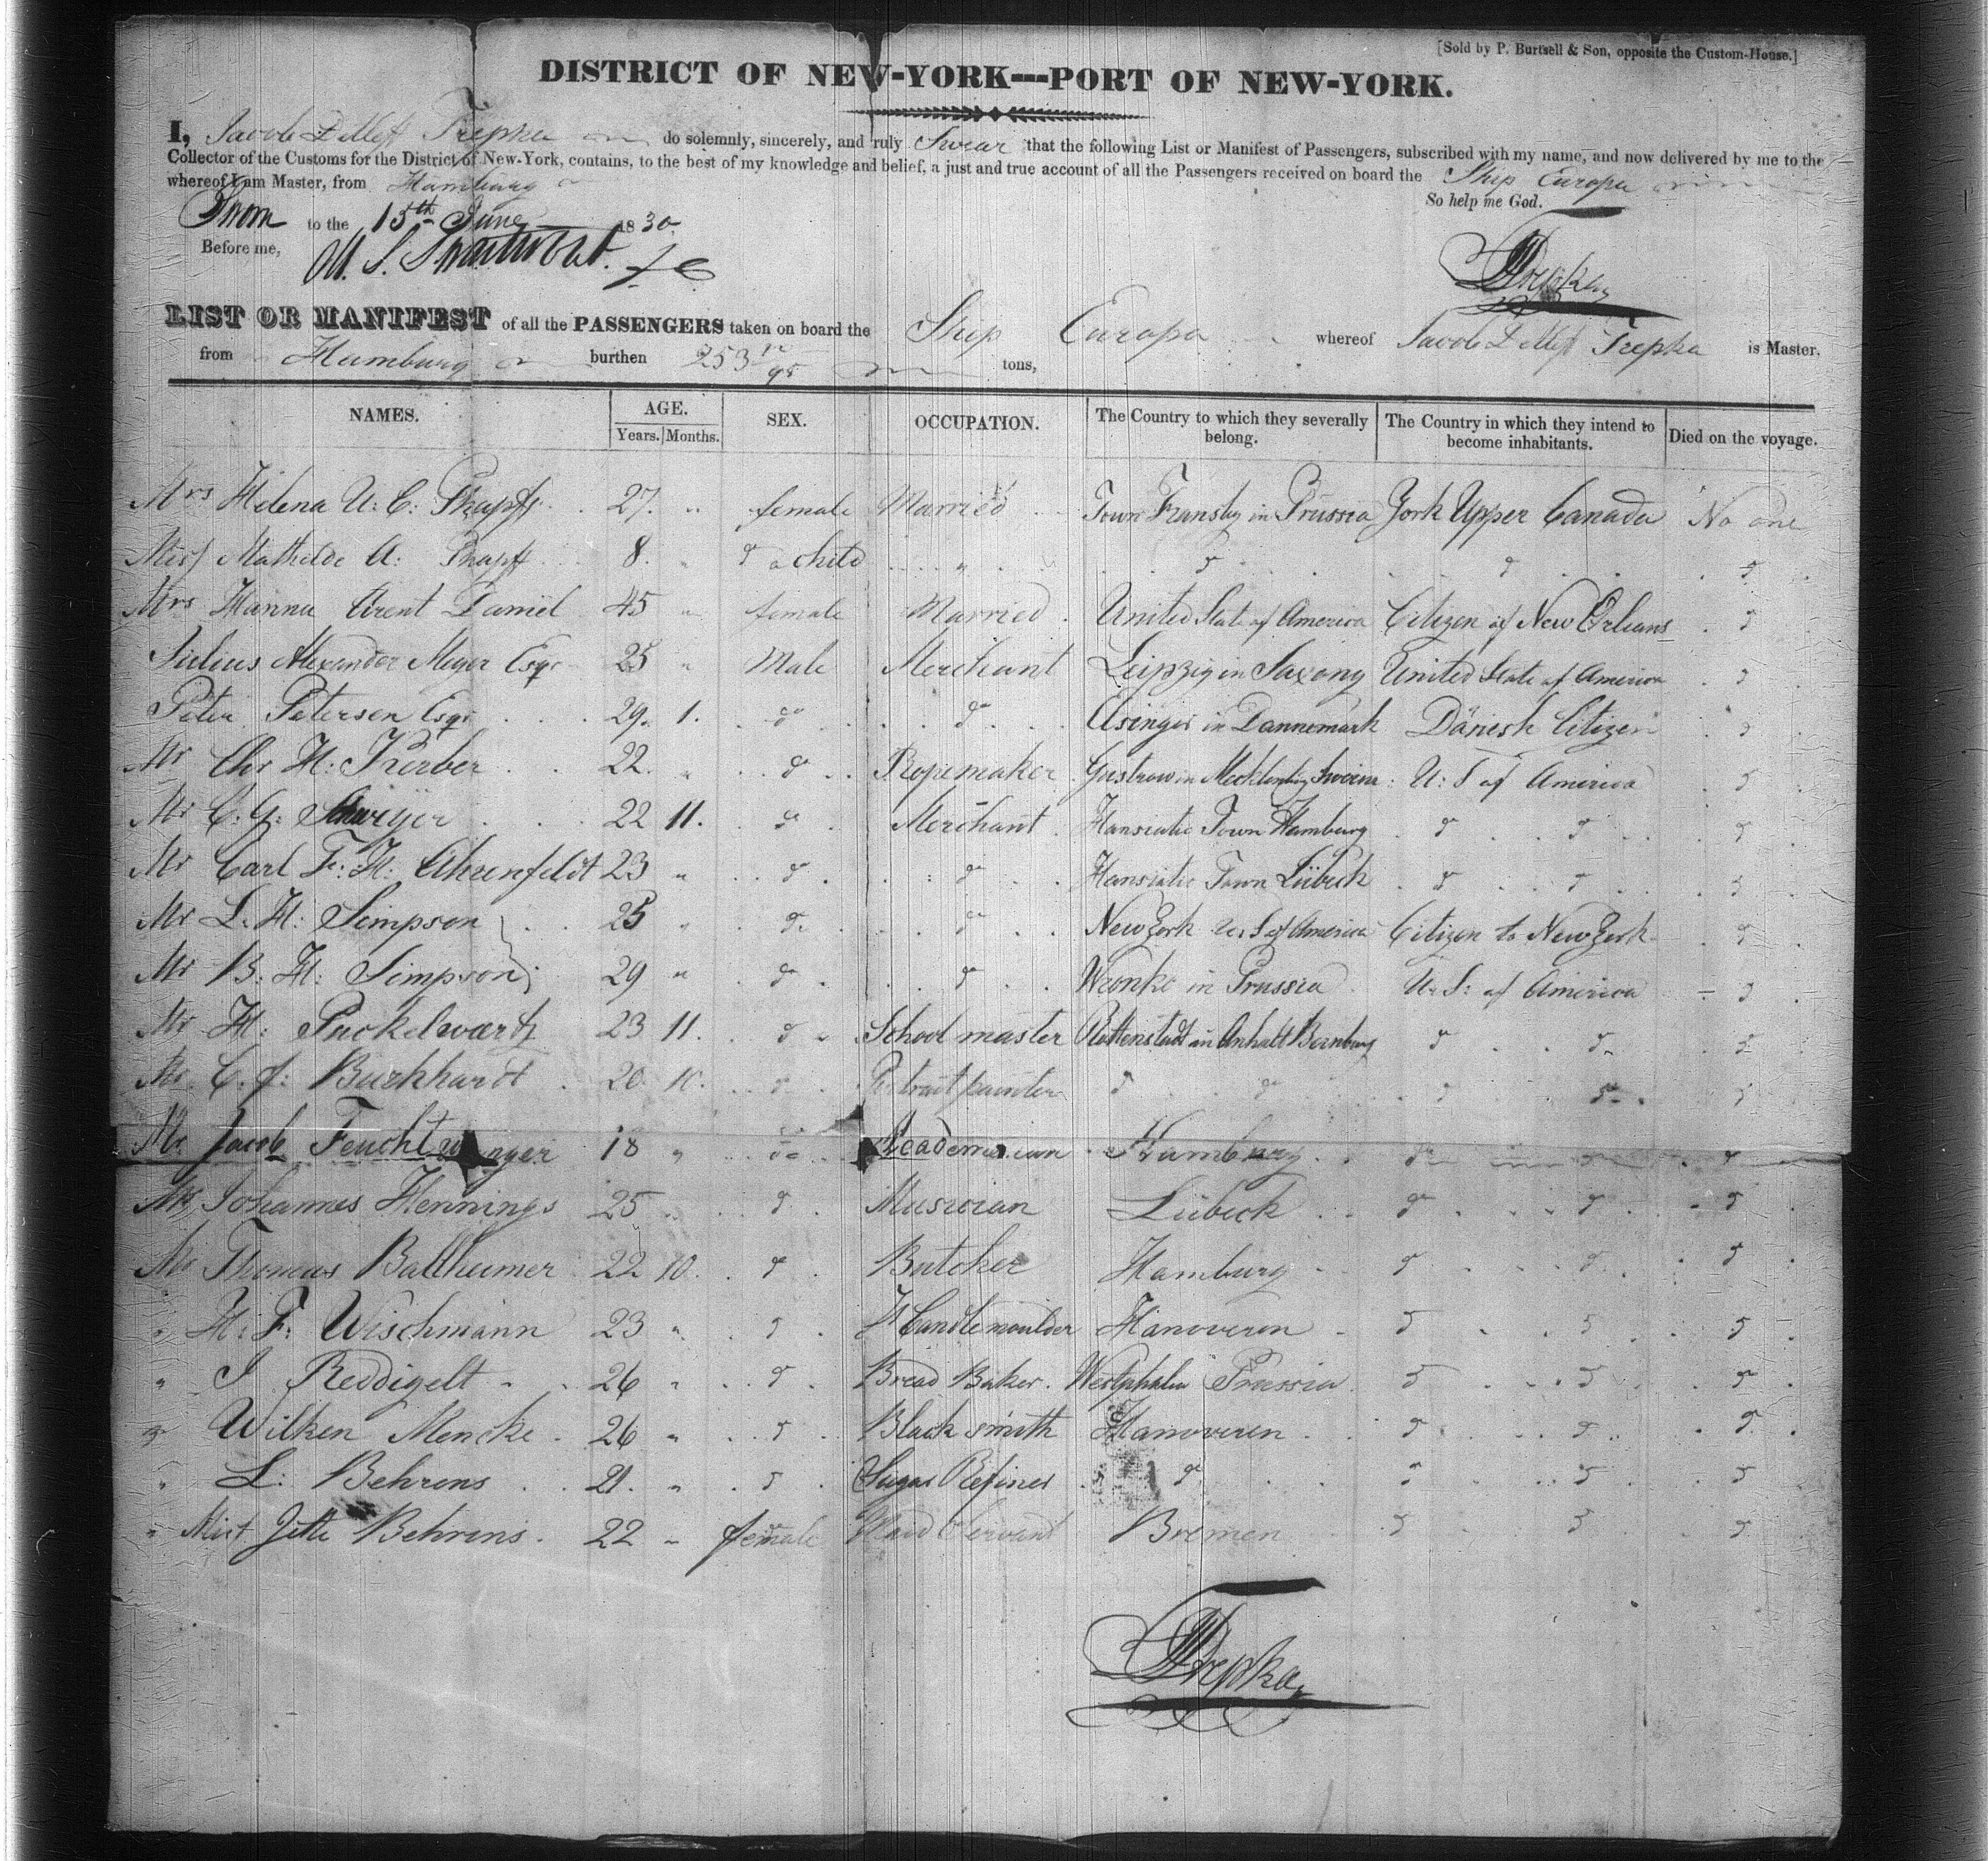 [Sold by P. Burtsell & Son, opposite the Custom-House.]
DISTRICT OF NEW-YORK---PORT OF NEW-YORK.
I, Jacob Detlef Trepka do solemnly, sincerely, and truly Swear that the following List or Manifest of Passengers, subscribed with my name, and now delivered by me to the
Collector of the Customs for the District of New-York, contains, to the best of my knowledge and belief, a just and true account of all the Passengers received on board the Ship Europa
whereof I am Master, from Hamburg
So help me God.
Sworn to the 15th June 1830.
Before me,
Trepka
LIST OR MANIFEST of all the PASSENGERS taken on board the Ship Europa whereof Jacob Detlef Trepka is Master,
from Hamburg burthen 253 tons,
NAMES. AGE. SEX. OCCUPATION. The Country to which they severally belong. The Country in which they intend to become inhabitants. Died on the voyage.
Years. Months.
Mrs Helena U: C: 27. " female Married Town in Prussia York Upper Canada No one
Miss Mathilde A: 8. " do a child " do do do
Mrs Hanna Arent Daniel 45 " female Married United State of America Citizen of New Orleans do
Julius Alexander Meyer Esqr 25 " Male Merchant Leipzig in Saxony United State of America do
Peter Petersen Esqr 29. 1. do do in Dannemark Dänish Citizen do
Mr Chr H: Kerber 22. " do Ropemaker Gustrow in Mecklenburg Swerin U: S of America do
Mr C: G: 22 11. do Merchant Hansiatic Town Hamburg do do do
Mr Carl F: H: Ahrenfeldt 23 " do do Hansiatic Town Lübeck do do do
Mr L. H: Simpson 25 " do do New York U. S of America Citizen to New York do
Mr B: H: Simpson 29 " do do Wronke in Prussia U. S: of America do
Mr H: Puckelwartz 23 11. do School master in Anhalt Bernburg do do do
Mr C. J: Burkhardt 20. 10. do Portrait painter do do do do do
Mr Jacob Feuchtwanger 18 " do Academician Hamburg do do do
Mr Johannes Hennings 25 " do Musician Lübeck do do do
Mr Thomas Ballheimer 22 10. do Butcher Hamburg do do do
" H: F: Wischmann 23 " do Candlemoulder Hanoveren do do do
" J Reddigelt 26 " do Bread Baker. Westphalia Prussia do do do
" Wilken Mencke 26 " do Black smith Hanoveren do do do
" L: Behrens 21. " do Sugar Refiner do do do do
" Miss Jette Behrens. 22 " female Maid Servant Bremen do do do
Trepka